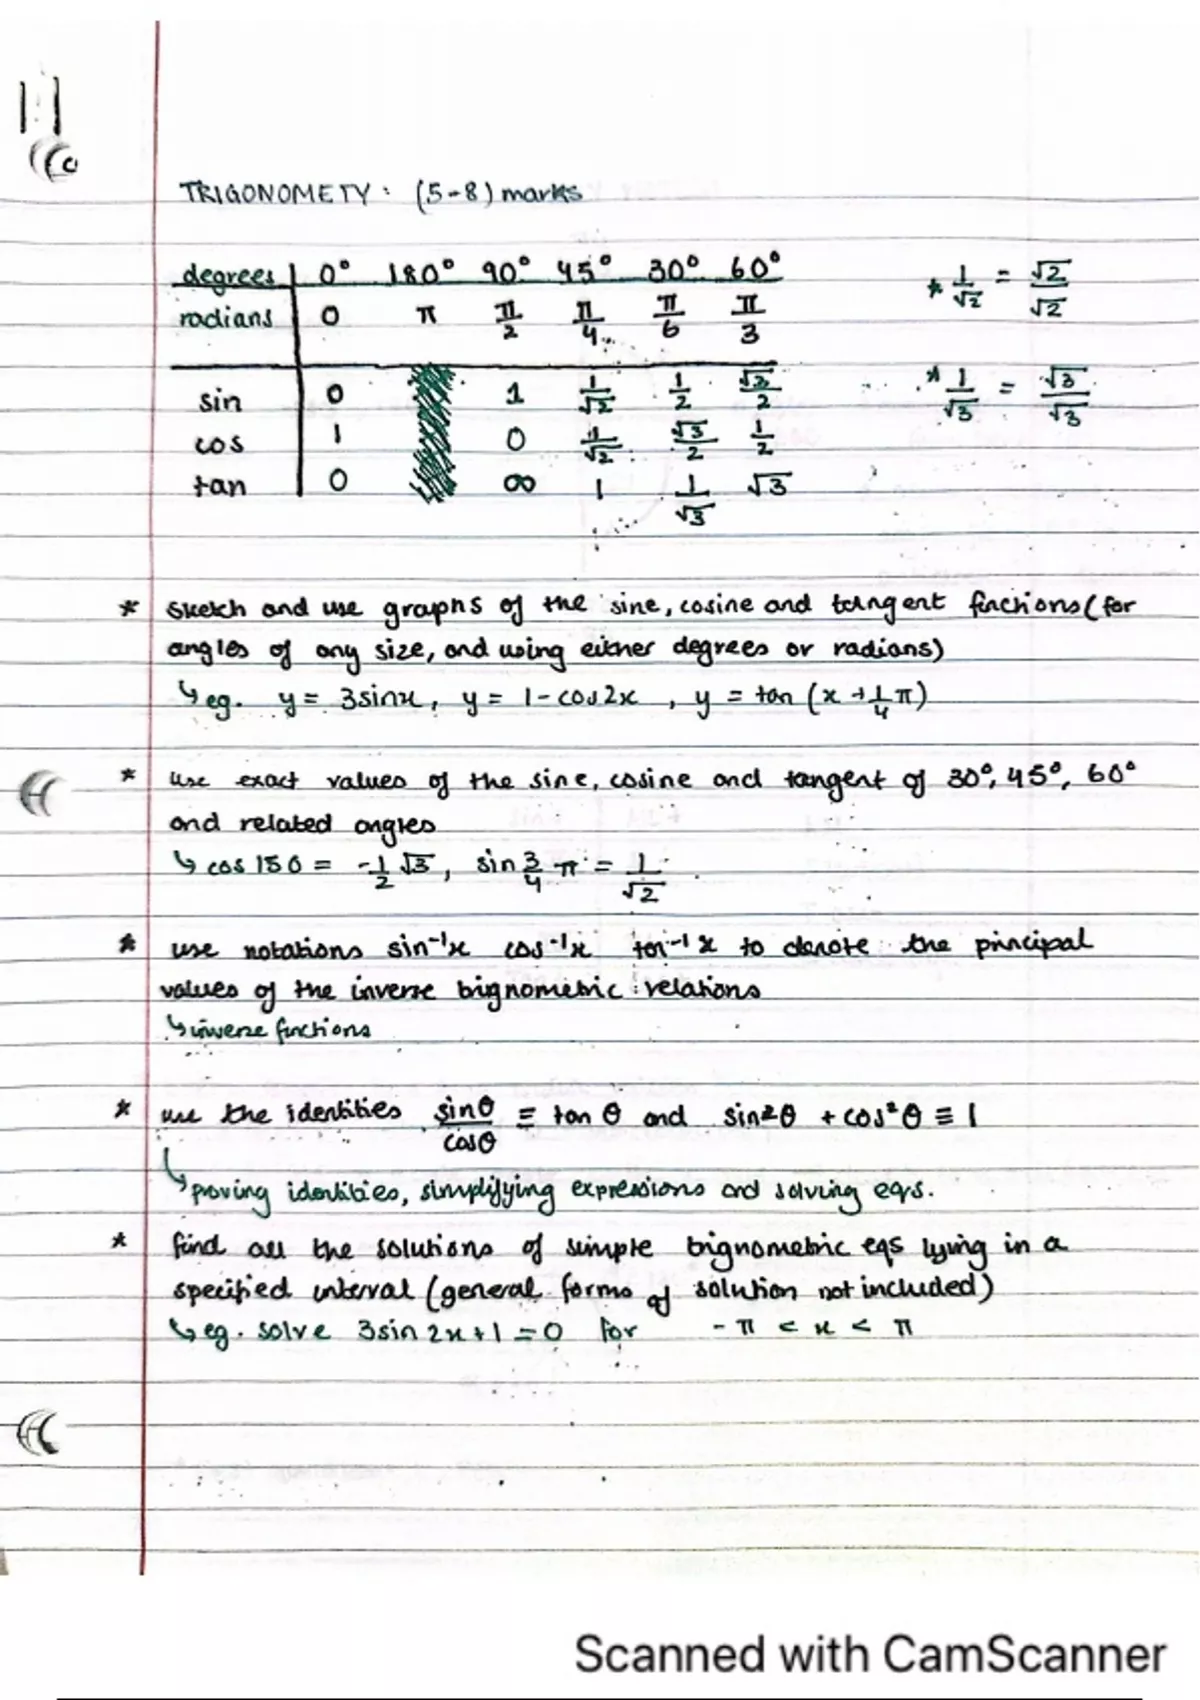 TRIGONOMETY : (5-8) marks
degrees 0° 180° 90° 45° 30° 60°
* 1/√2 = √2/√2
radians 0 π π/2 π/4 π/6 π/3
sin 0 1 1/√2 1/2 √3/2
* 1/√3 = √3/√3
cos 1 0 1/√2 √3/2 1/2
tan 0 ∞ 1 1/√3 √3
* sketch and use graphs of the sine, cosine and tangent finctions (for
angles of any size, and using either degrees or radians)
↳ eg. y = 3sinx, y = 1 - cos2x , y = tan (x + 1/4 π)
* use exact values of the sine, cosine and tangent of 30°, 45°, 60°
and related angles
↳ cos 150 = -1/2 √3, sin 3/4 π = 1/√2
* use notations sin⁻¹x cos⁻¹x tan⁻¹x to denote the principal
values of the inverse trignometric relations
↳ inverse finctions
* use the identities sinθ/cosθ ≡ tan θ and sin²θ + cos²θ ≡ 1
↳ proving identities, simplifying expressions and solving eqs.
* find all the solutions of simple trignometric eqs lying in a
specified interval (general forms of solution not included)
↳ eg. solve 3sin 2x + 1 = 0 for - π < x < π
Scanned with CamScanner